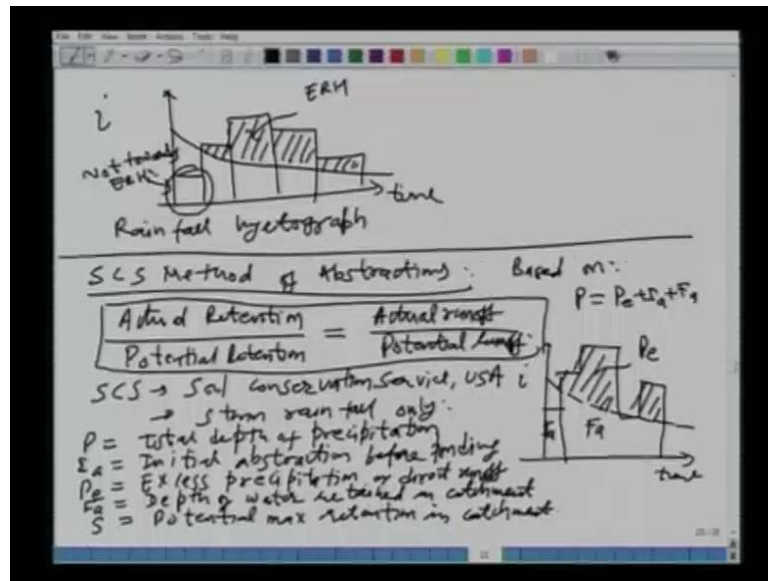 File Edit View Insert Actions Tools Help
i
ERH
ERH
time
Rainfall hyetograph
SCS Method of Abstractions: Based on:
P = Pe + Ia + Fa
Actual Retention / Potential Retention = Actual runoff / Potential runoff
SCS → Soil conservation Service, USA
→ storm rainfall only.
P = Total depth of precipitation
Ia = Initial abstraction before ponding
Pe = Excess precipitation or direct runoff
Fa = Depth of water retained in catchment
S = Potential max retention in catchment
i
Pe
Ia
Fa
time